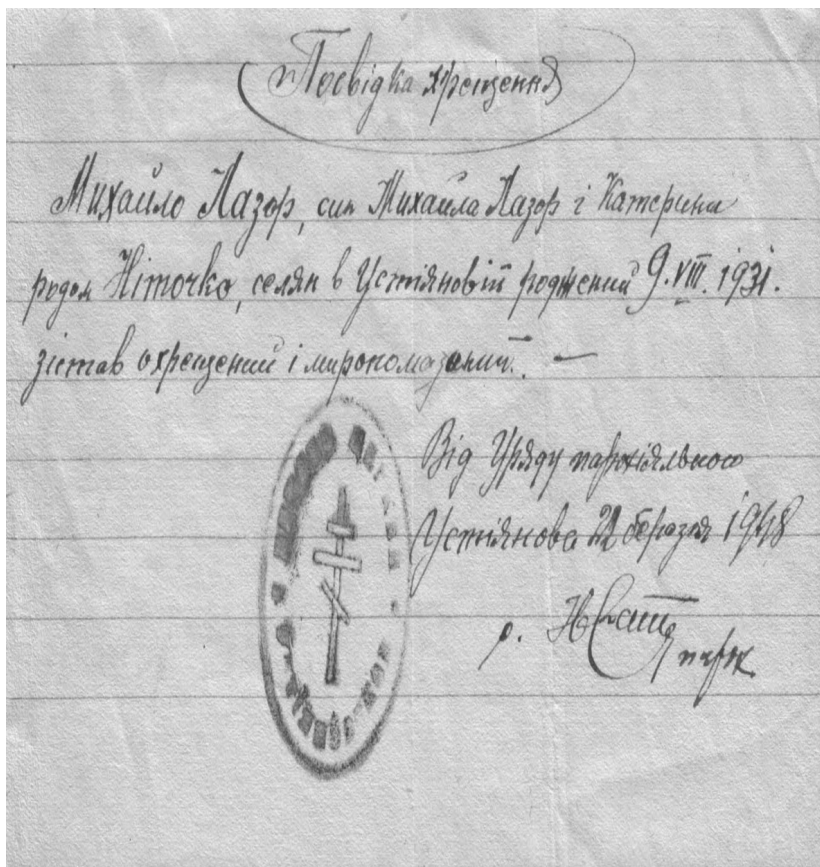 Посвідка хрещення
Михайло Лазор, син Михайла Лазор і Катерини
родом Ніточко, селян в Устіяновій роджений 9.VIII.1931.
зістав охрещений і миропомазаний. —
Від Уряду парохіяльного
Устіянова 22 березня 1948
о.